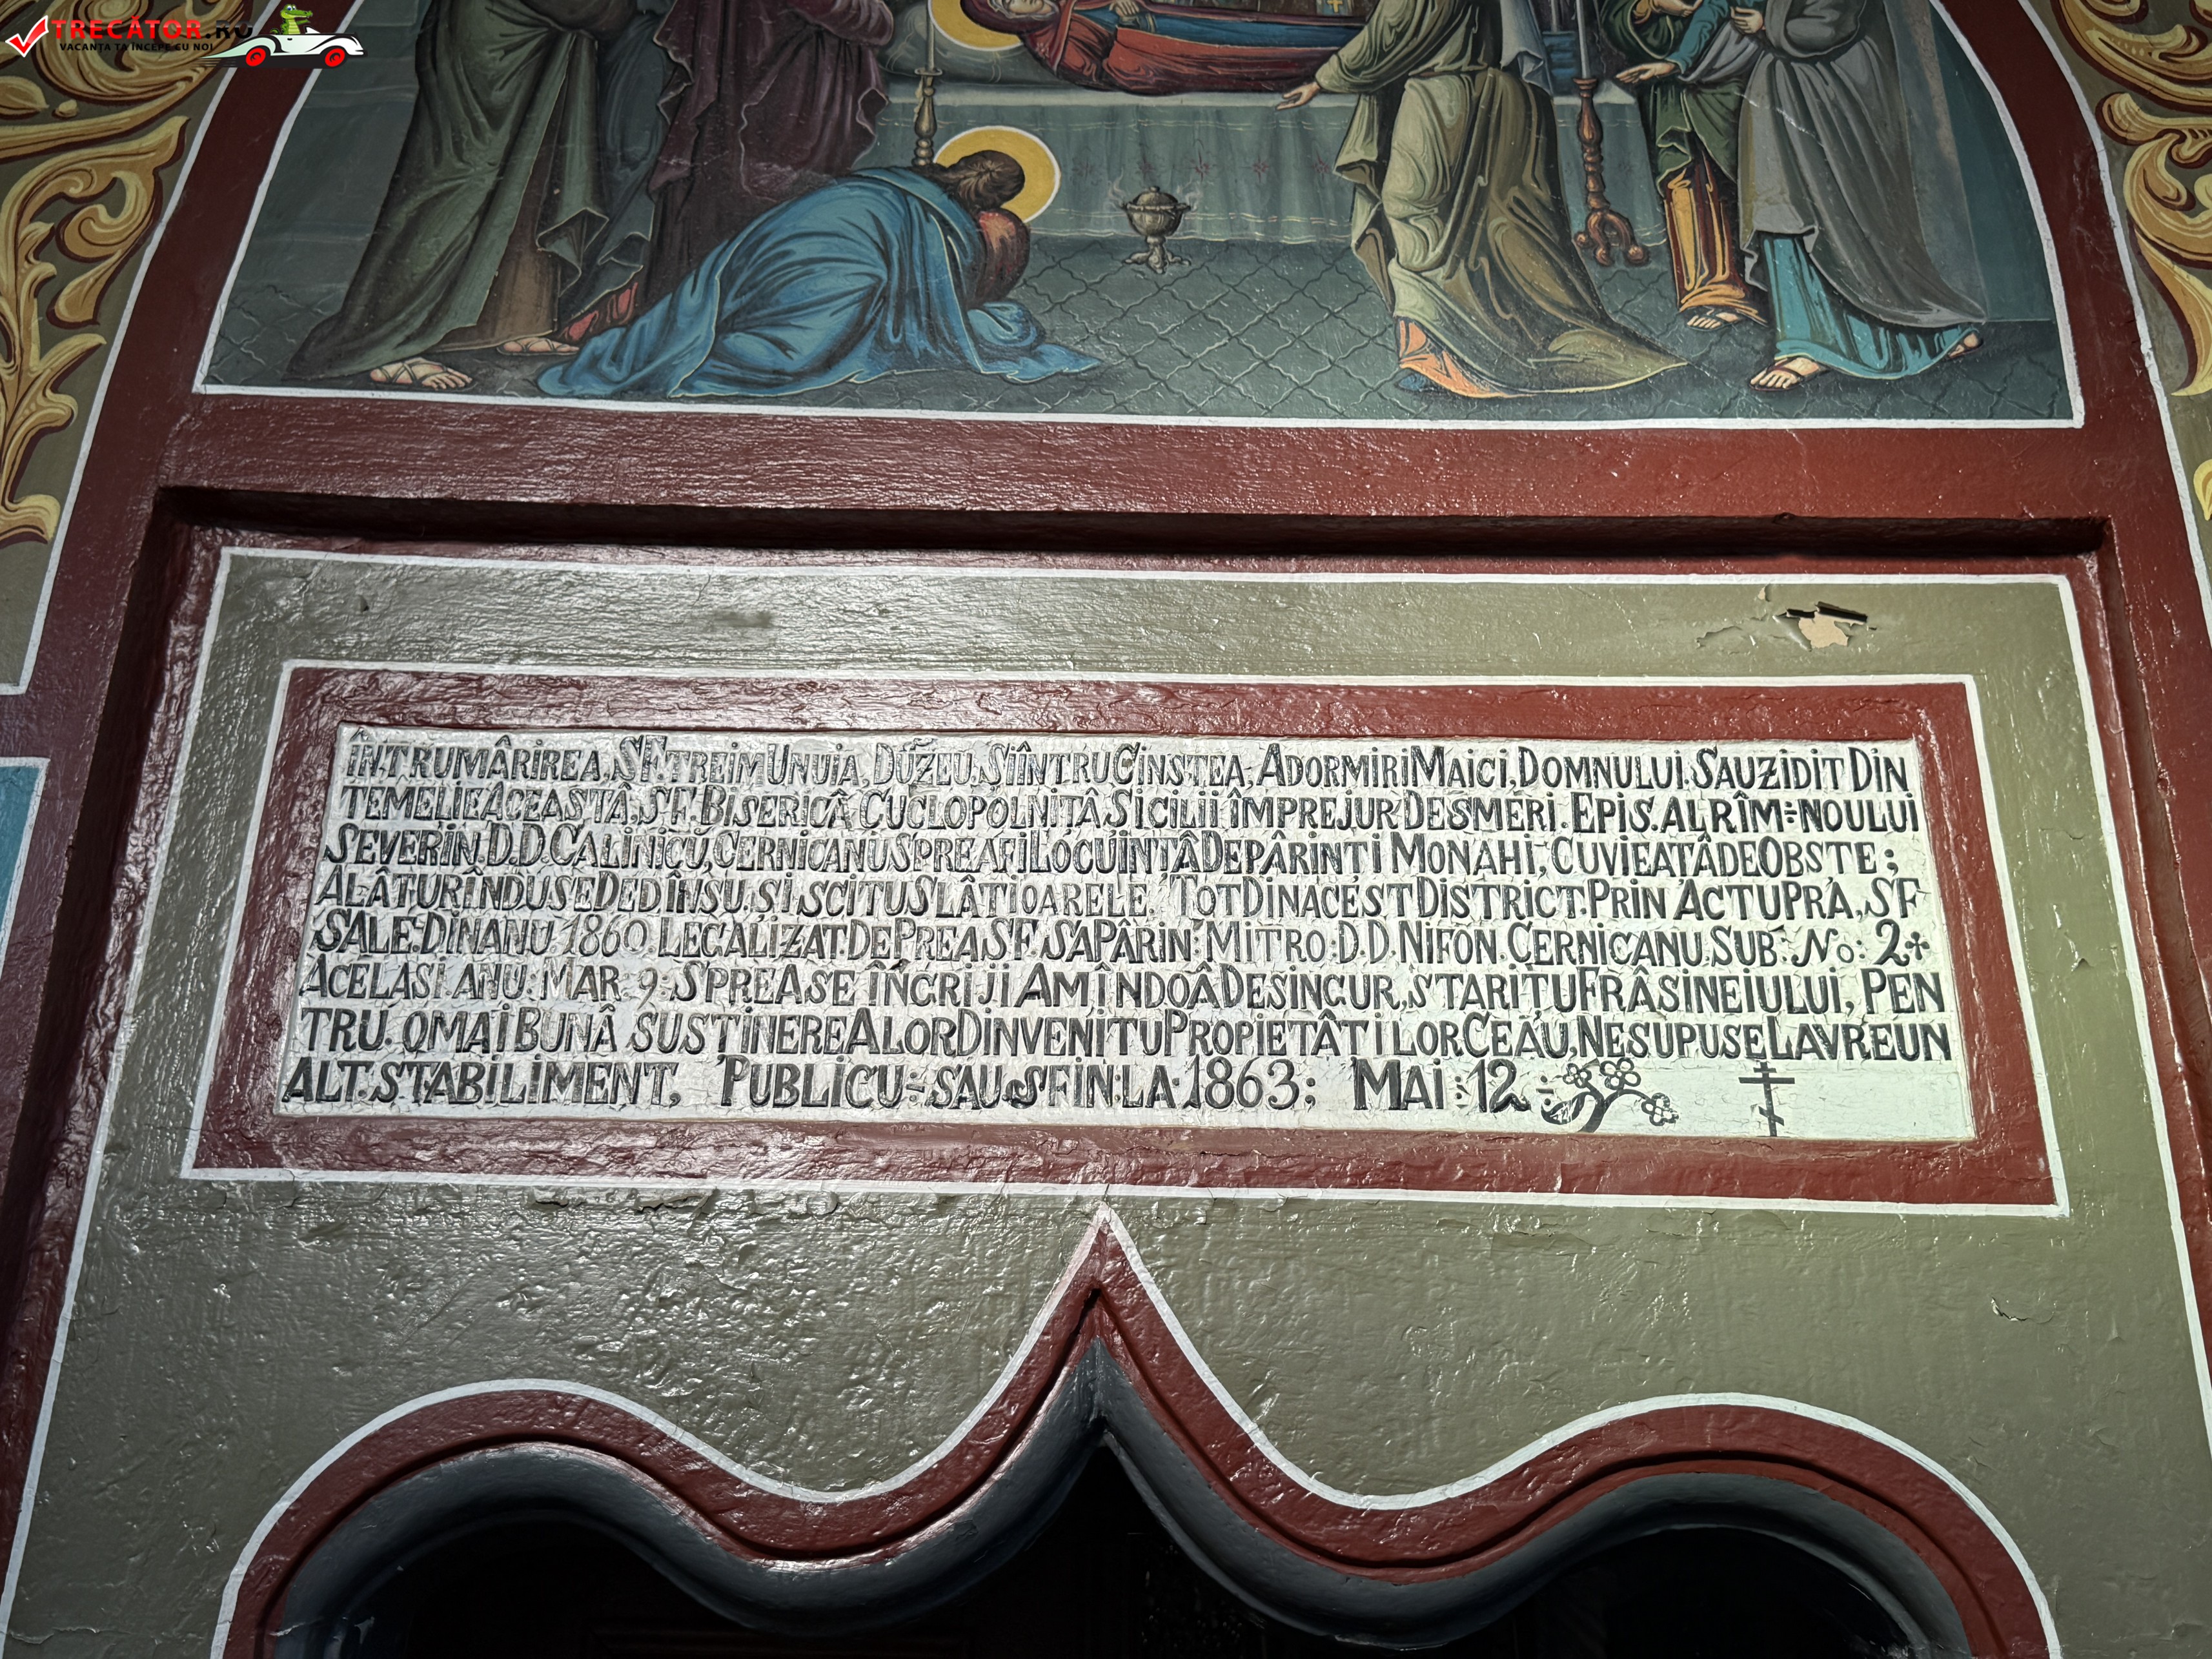 TRECĂTOR.RO
VACANȚA TA ÎNCEPE CU NOI
ÎNTRUMÂRIREA, SF. TREIMUNUIA, DUZEU, SIÎNTRUCINSTEA, ADORMIRIMAICI, DOMNULUI. SAUZIDIT DIN
TEMELIEACEASTÂ, SF. BISERICÂ CUCLOPOLNITÂ SICILII ÎMPREJUR DESMERI. EPIS. AL RÎM÷NOULUI
SEVERIN. D.D. CALINICU, CERNICANU SPREAFI LOCUINTÂ DEPÂRINTI MONAHI, CUVIEATÂ DEOBSTE;
ALÂTURÎNDUSE DEDÎNSU. SI SCITU SLÂTIOARELE. TOT DINACEST DISTRICT. PRIN ACTU PRA. SF
SALE. DINANU 1860 LEGALIZAT DEPREA SF. SAPÂRIN: MITRO: D.D. NIFON. CERNICANU. SUB: No: 2+
ACELASI ANU: MAR. 9: SPREASE ÎNGRIJI AMÎNDOÂ DESINGUR, STARIȚU FRÂSINEIULUI, PEN
TRU. OMAIBUNÂ SUSTINEREALOR DINVENITU PROPIETÂTILOR CEAU, NESUPUSE LAVREUN
ALT. STABILIMENT, PUBLICU÷ SAU SFIN: LA: 1863; MAI: 12÷